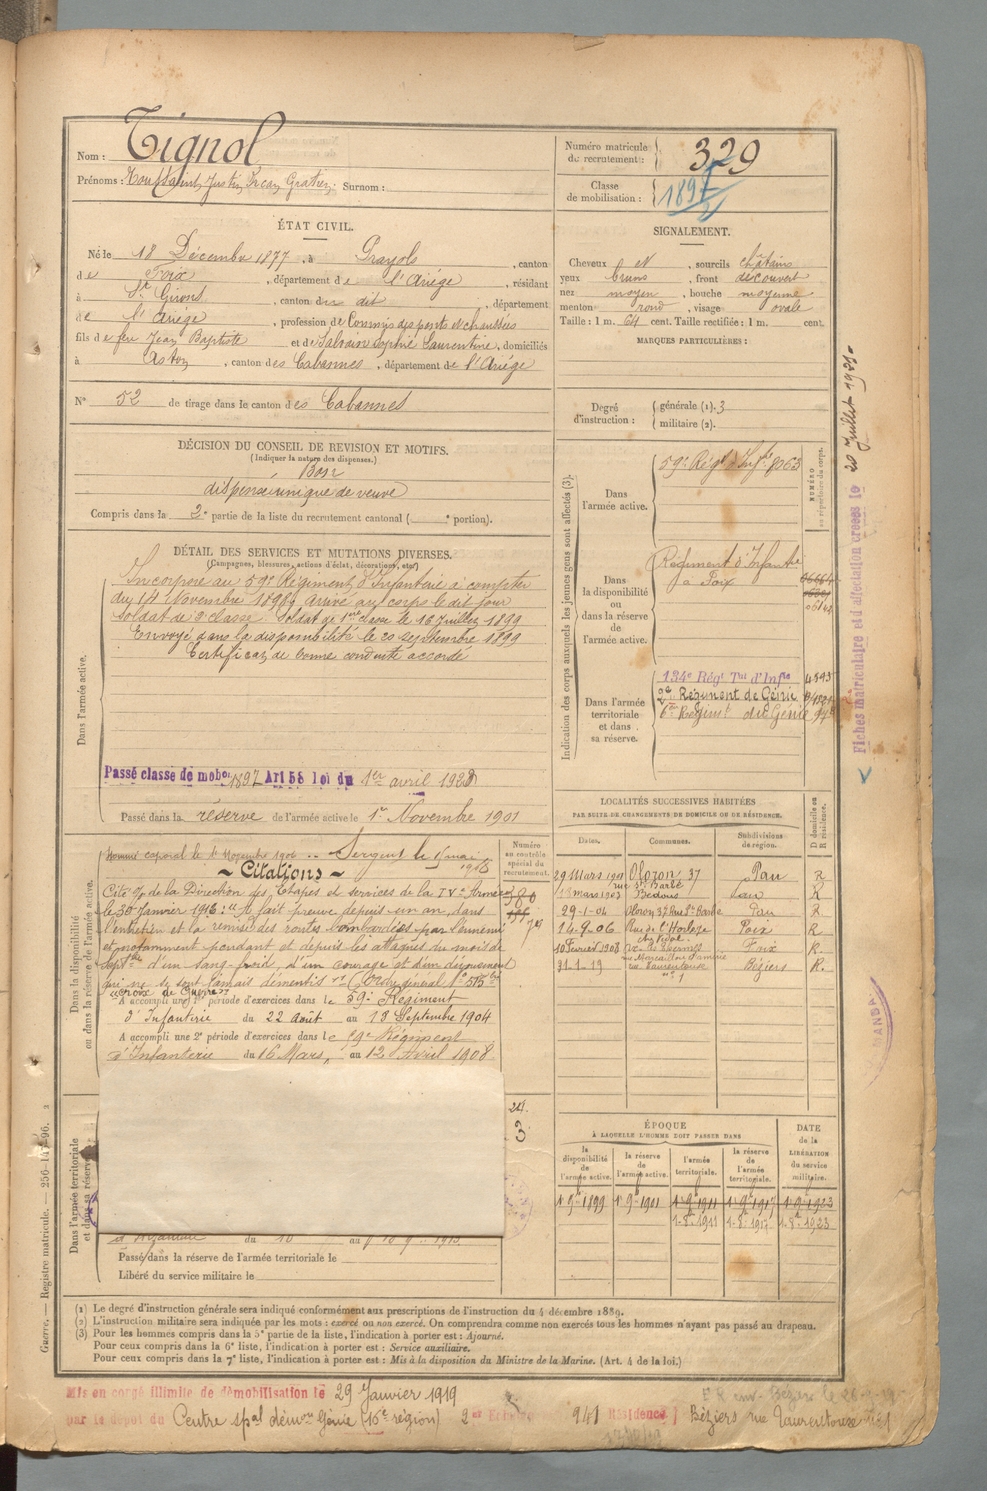 Nom : Tignol
Prénoms : Toussaint, Justin, Gratien. Surnom :
Numéro matricule de recrutement : 329
Classe de mobilisation : 1897
ÉTAT CIVIL.
Né le 18 Décembre 1877, à Prayols, canton
de Foix, département de l'Ariége, résidant
à St Girons, canton du dit, département
de l'Ariége, profession de Commis des ponts et chaussées
fils de feu Jean Baptiste et de Sophie Laurentine, domiciliés
à Aston, canton des Cabannes, département de l'Ariége
N° 52 de tirage dans le canton des Cabannes
SIGNALEMENT.
Cheveux et, sourcils châtains
yeux bruns, front découvert
nez moyen, bouche moyenne
menton rond, visage ovale
Taille : 1 m. 64 cent. Taille rectifiée : 1 m. cent.
MARQUES PARTICULIÈRES :
Degré d'instruction : générale (1). 3
militaire (2).
DÉCISION DU CONSEIL DE REVISION ET MOTIFS.
(Indiquer la nature des dispenses.)
Bon
dispensé unique de veuve
Compris dans la 2e partie de la liste du recrutement cantonal ( e portion).
DÉTAIL DES SERVICES ET MUTATIONS DIVERSES.
(Campagnes, blessures, actions d'éclat, décorations, etc.)
Dans l'armée active.
Incorporé au 59e Régiment d'Infanterie à compter
du 14 Novembre 1898, arrivé au corps le dit jour
soldat de 2e classe. Soldat de 1ère classe le 16 Juillet 1899
Envoyé dans la disponibilité le 20 Septembre 1899
Certificat de bonne conduite accordé
Passé classe de mobon 1897 Art 58 loi du 1er avril 1923
Passé dans la réserve de l'armée active le 1er Novembre 1901
Indication des corps auxquels les jeunes gens sont affectés (3).
NUMÉRO au répertoire du corps.
Dans l'armée active. 59e Régt d'Infie 8063
Dans la disponibilité ou dans la réserve de l'armée active. Régiment d'Infantie à Foix
Dans l'armée territoriale et dans sa réserve. 134e Régt Tal d'Infie 4893
2e Régiment de Génie
6e Régimt du Génie
Fiches matriculaire et d'affectation créées le 20 Juillet 1921
Dans la disponibilité ou dans la réserve de l'armée active.
Numéro au contrôle spécial du recrutement.
Nommé caporal le 1 Novembre 1906 .. Sergent le 15 mai 1915
~ Citations ~
Cité de la Direction des Etapes et services de la IVe Armée
le 30 Janvier 1916 : "A fait preuve depuis un an, dans
l'entretien et la remise des routes bombardées par l'ennemi
et notamment pendant et depuis les attaques du mois de
Septbre d'un sang-froid, d'un courage et d'un dévouement
qui ne se sont jamais démentis"
"Croix de Guerre"
A accompli une 1e période d'exercices dans le 59e Régiment
d'Infanterie du 22 Août au 18 Septembre 1904
A accompli une 2e période d'exercices dans le 59e Régiment
d'Infanterie du 16 Mars, au 12 Avril 1908
LOCALITÉS SUCCESSIVES HABITÉES
PAR SUITE DE CHANGEMENTS DE DOMICILE OU DE RÉSIDENCE.
Dates. Communes. Subdivisions de région. D domicile ou R résidence.
29 Mars 1901 Oloron 37 rue Ste Barbe Pau R
18 mars 1903 Bedous Pau R
29-1-04 Oloron 37 Rue Ste Barbe Pau R
14-9-06 Rue de l'Horloge Foix R
10 Février 1908 Foix R.
31-1-19 rue Taurentouse n° 1 Béziers R.
ÉPOQUE
À LAQUELLE L'HOMME DOIT PASSER DANS
DATE de la LIBÉRATION du service militaire.
la disponibilité de l'armée active. la réserve de l'armée active. l'armée territoriale. la réserve de l'armée territoriale.
1 9bre 1899 1 9bre 1901 1 9bre 1911 1 9bre 1917 1 9bre 1923
1-8bre 1911 1-8bre 1917 1-8bre 1923
Dans l'armée territoriale et dans sa réserve
3
Passé dans la réserve de l'armée territoriale le
Libéré du service militaire le
(1) Le degré d'instruction générale sera indiqué conformément aux prescriptions de l'instruction du 4 décembre 1889.
(2) L'instruction militaire sera indiquée par les mots : exercé ou non exercé. On comprendra comme non exercés tous les hommes n'ayant pas passé au drapeau.
(3) Pour les hommes compris dans la 5e partie de la liste, l'indication à porter est : Ajourné.
Pour ceux compris dans la 6e liste, l'indication à porter est : Service auxiliaire.
Pour ceux compris dans la 7e liste, l'indication à porter est : Mis à la disposition du Ministre de la Marine. (Art. 4 de la loi.)
Guerre. — Registre matricule. — 256-147-96.
Mis en congé illimité de démobilisation le 29 Janvier 1919
par le dépôt du Centre spal démon Génie (16e région) 2e Echelon 941 Résidence Béziers rue Taurentouse n° 1